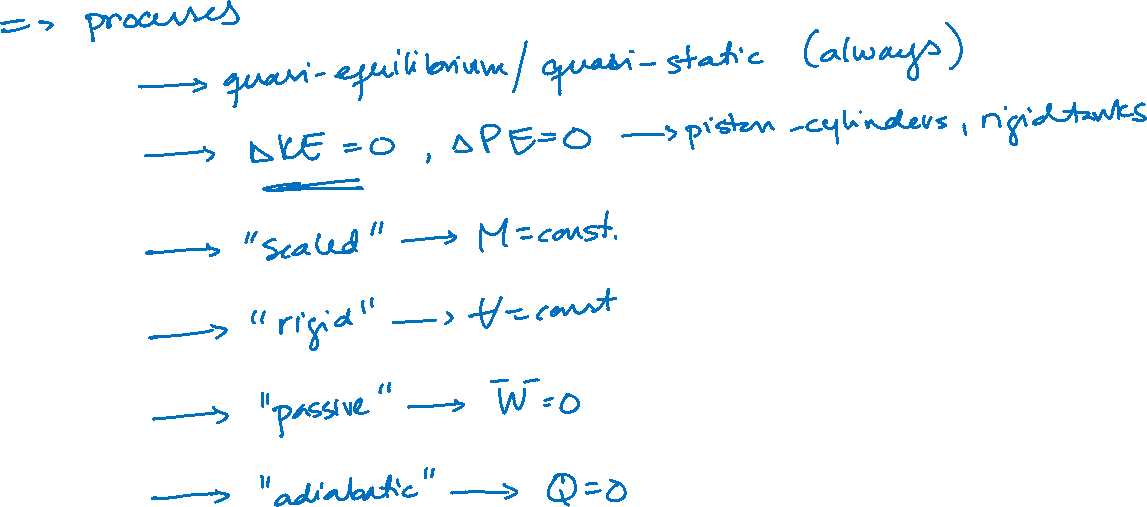 => processes
→ quasi-equilibrium/quasi-static (always)
→ ΔKE = 0, ΔPE=0 → piston-cylinders, rigid tanks
→ "sealed" → M=const.
→ "rigid" → V=const
→ "passive" → W=0
→ "adiabatic" → Q=0